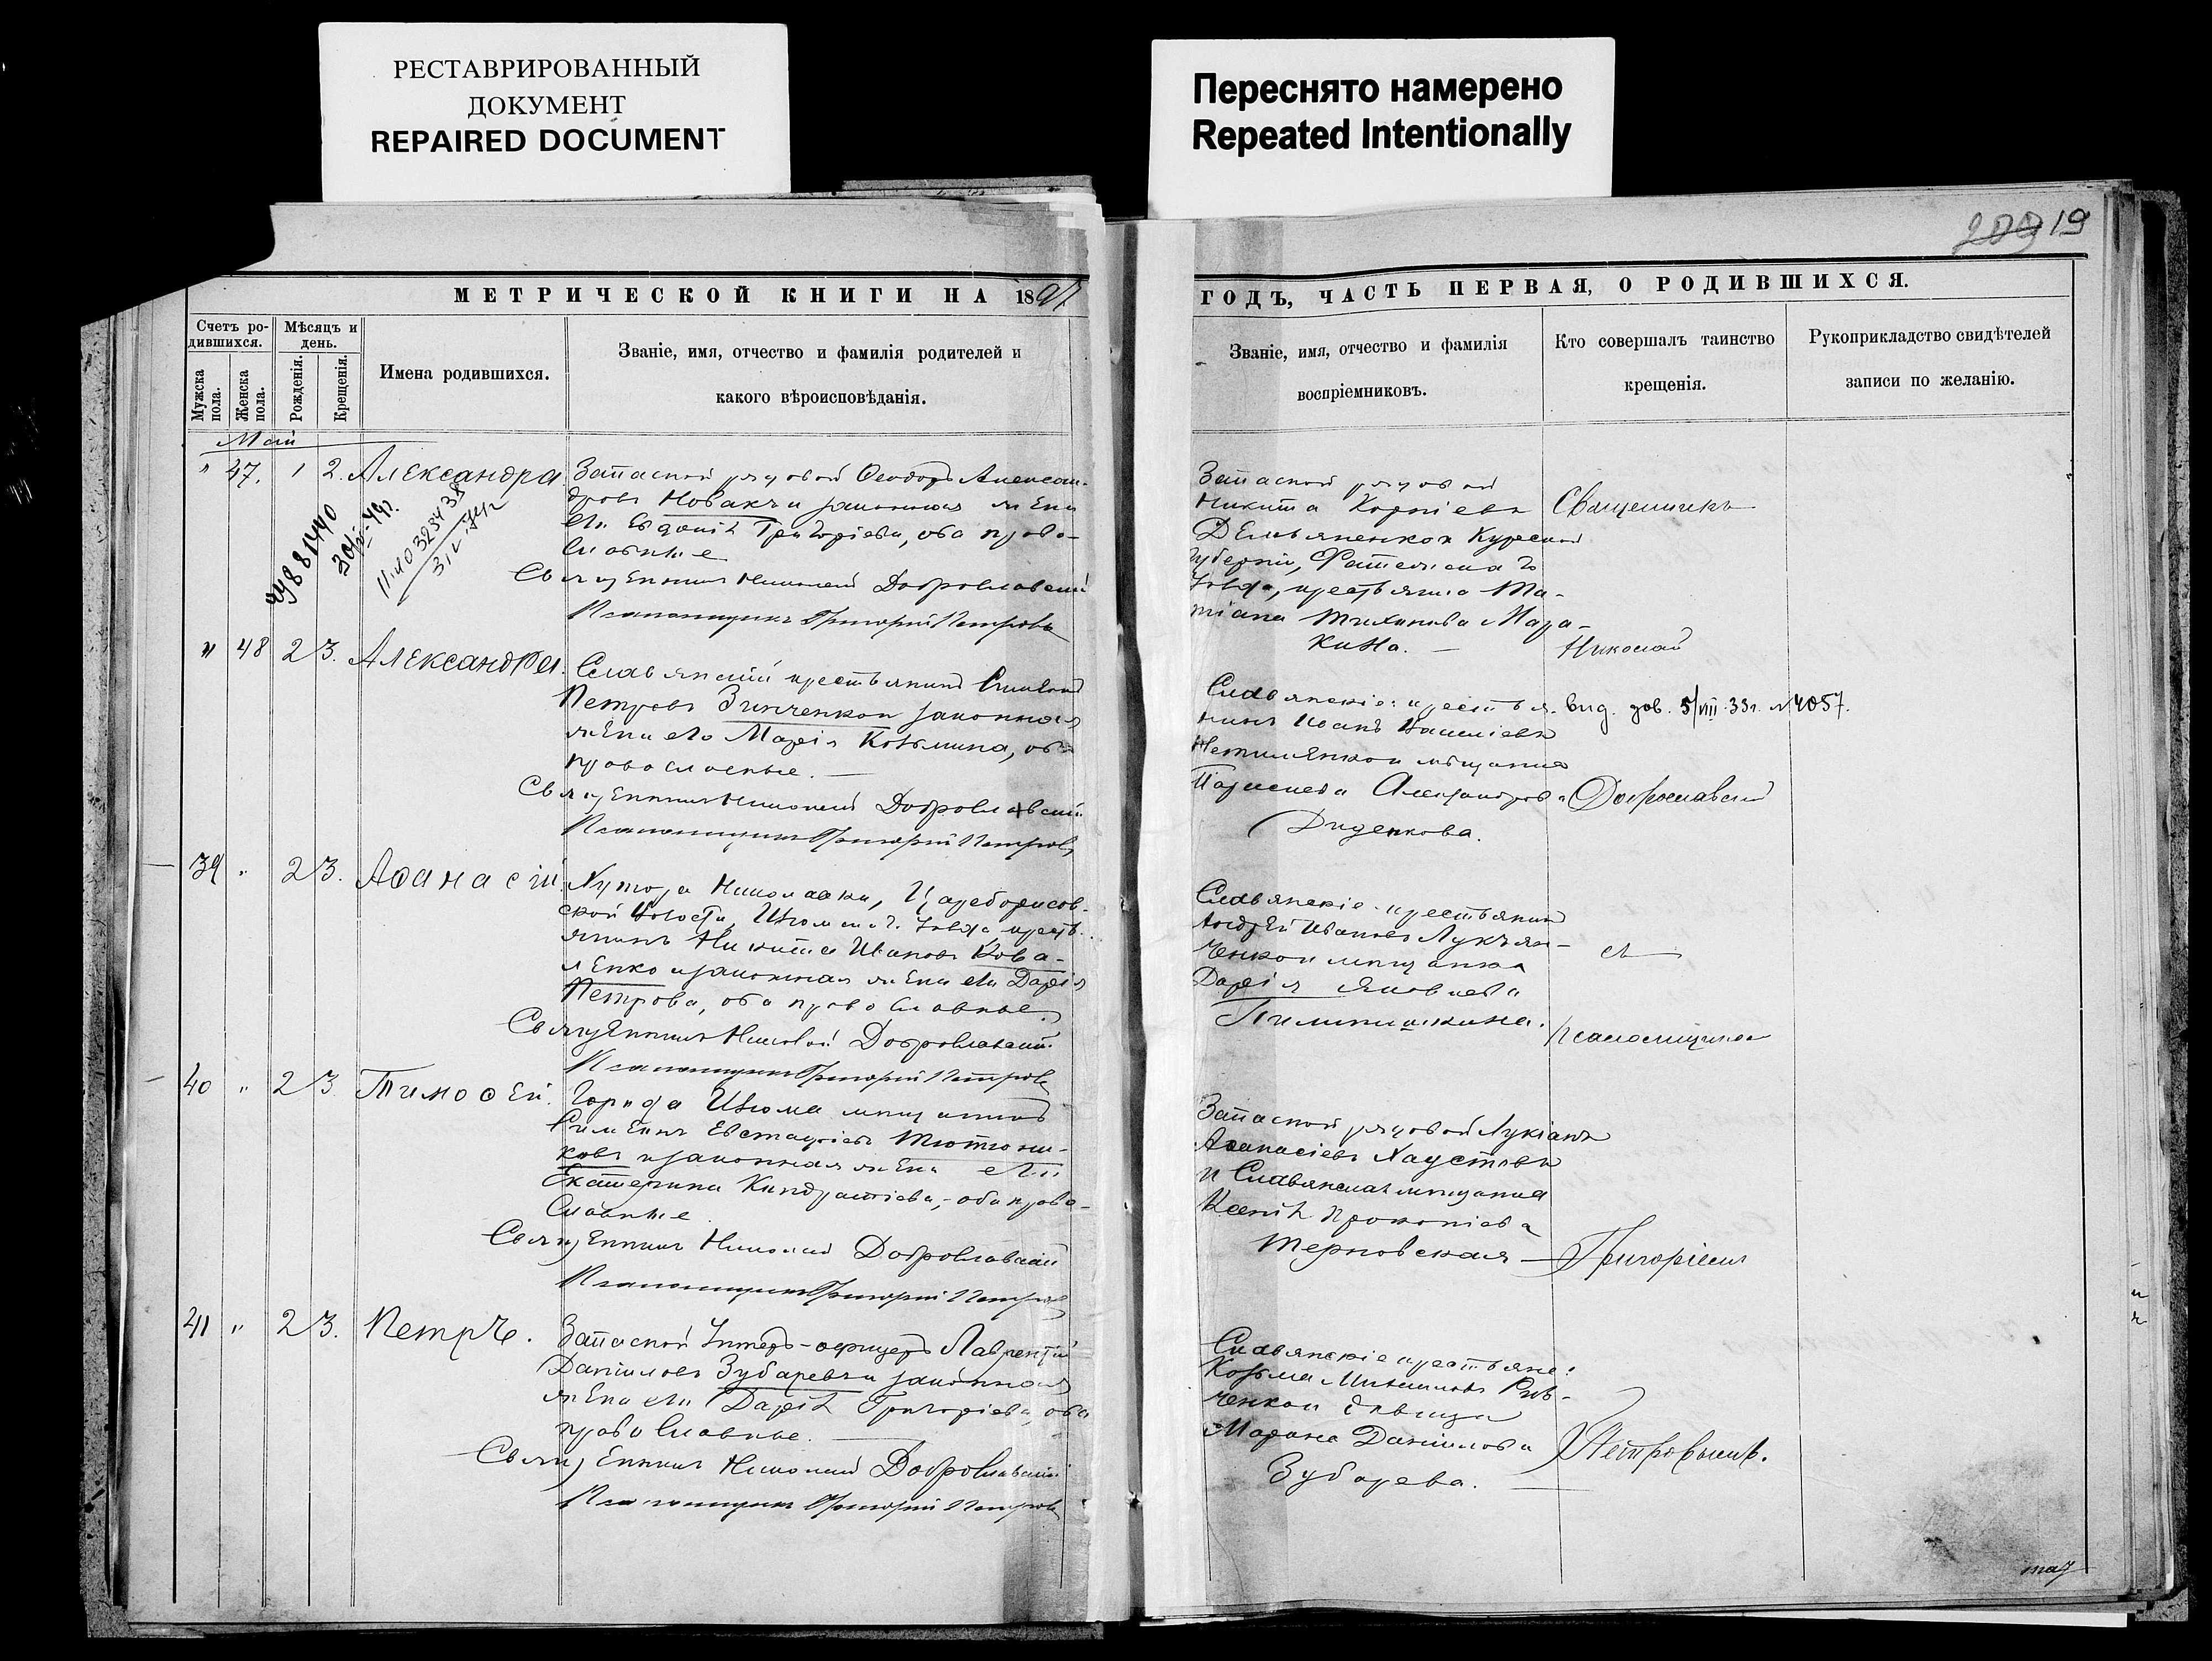 РЕСТАВРИРОВАННЫЙ
ДОКУМЕНТ
REPAIRED DOCUMENT
Переснято намерено
Repeated Intentionally
209 19
МЕТРИЧЕСКОЙ КНИГИ НА 1897
ГОДЪ, ЧАСТЬ ПЕРВАЯ, О РОДИВШИХСЯ.
Счетъ ро-
дившихся.
Мужска
пола.
Женска
пола.
Мѣсяцъ и
день.
Рожденія.
Крещенія.
Имена родившихся.
Званіе, имя, отчество и фамилія родителей и
какого вѣроисповѣданія.
Званіе, имя, отчество и фамилія
воспріемниковъ.
Кто совершалъ таинство
крещенія.
Рукоприкладство свидѣтелей
записи по желанію.
Май
" 47. 1 2. Александра
Запасной рядовой Ѳеодоръ Алексан-
дровъ Новакъ и законная жена
его Евдокія Григоріева, оба право-
славные
Священникъ Николай Доброславскій
Псаломщикъ Григорій Петровъ
Запасной рядовой
Никита Корніевъ
Емельяненко и Курской
губерніи, Фатежскаго
уѣзда, крестьянка Та-
тіана Тихонова Мара-
кина.
Священникъ
" 48 2 3. Александра
Славянскій крестьянинъ
Петровъ Зинченко и законная
жена его Марія Козьмина, оба
православные.
Священникъ Николай Доброславскій
Псаломщикъ Григорій Петровъ
Славянскіе: крестья-
нинъ Иоанъ Василіевъ
и мѣщанка
Александрова
Диденкова.
Николай
вид. дов. 5/VIII 33г. № 4057.
Доброславскій
39 " 2 3. Аѳанасій
Хутора Николаевки, Цареборисов-
ской волости, Изюмскаго уѣзда крест-
янинъ Никита Ивановъ Кова-
ленко и законная жена его Дарія
Петрова, оба православные
Священникъ Николай Доброславскій
Псаломщикъ Григорій Петровъ
Славянскіе: крестьянинъ
Андрей Ивановъ Лукъян-
ченко и мѣщанка
Дарія Яковлева
съ
псаломщикомъ
40 " 2 3 Тимоѳей.
Города Изюма мѣщанинъ
Симеонъ Евстафіевъ Тютюни-
ковъ и законная жена его
Екатерина Кондратіева, оба право-
славные
Священникъ Николай Доброславскій
Псаломщикъ Григорій Петровъ
Запасной рядовой Лукіанъ
Аѳанасіевъ Хаустовъ
и Славянская мѣщанка
Ксенія Прокопіева
Терновская
Григоріемъ
41 " 2 3. Петръ.
Запасной Унтеръ-офицеръ Лаврентій
Даніиловъ Зубаревъ и законная
жена его Дарія Григоріева, оба
православные.
Священникъ Николай Доброславскій
Псаломщикъ Григорій Петровъ
Славянскіе крестьяне:
Козьма
ченко и дѣвица
Марина Даніилова
Зубарева.
Петровымъ.